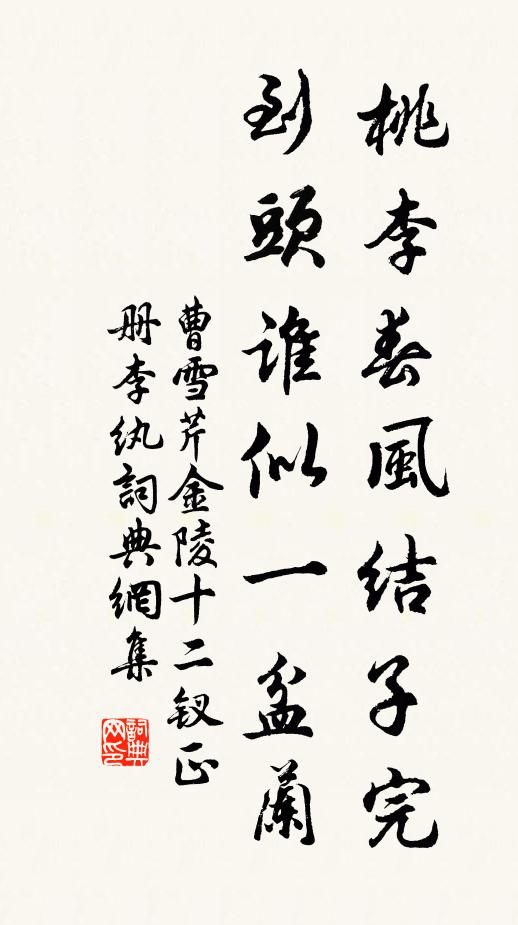 桃李春風結子完
到頭誰似一盆蘭
曹雪芹金陵十二釵正
册李紈詞典網集
詞典网印